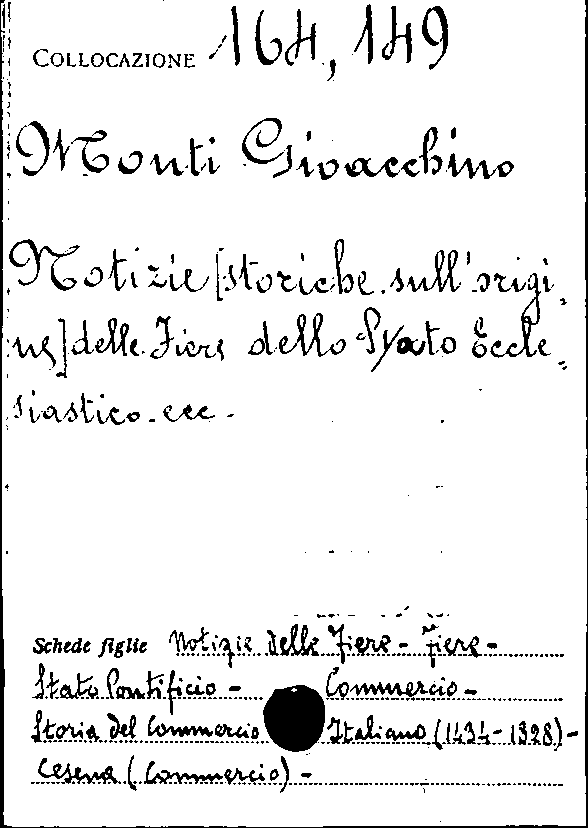 COLLOCAZIONE 164, 149
Monti Gioacchino
Notizie [storiche sull'origi-
ne] delle Fiere dello Stato Eccle-
siastico ecc.
Schede figlie Notizie delle Fiere - Fiere -
Stato Pontificio - Commercio -
Storia del Commercio Italiano (1434-1828) -
Cesena (Commercio) -